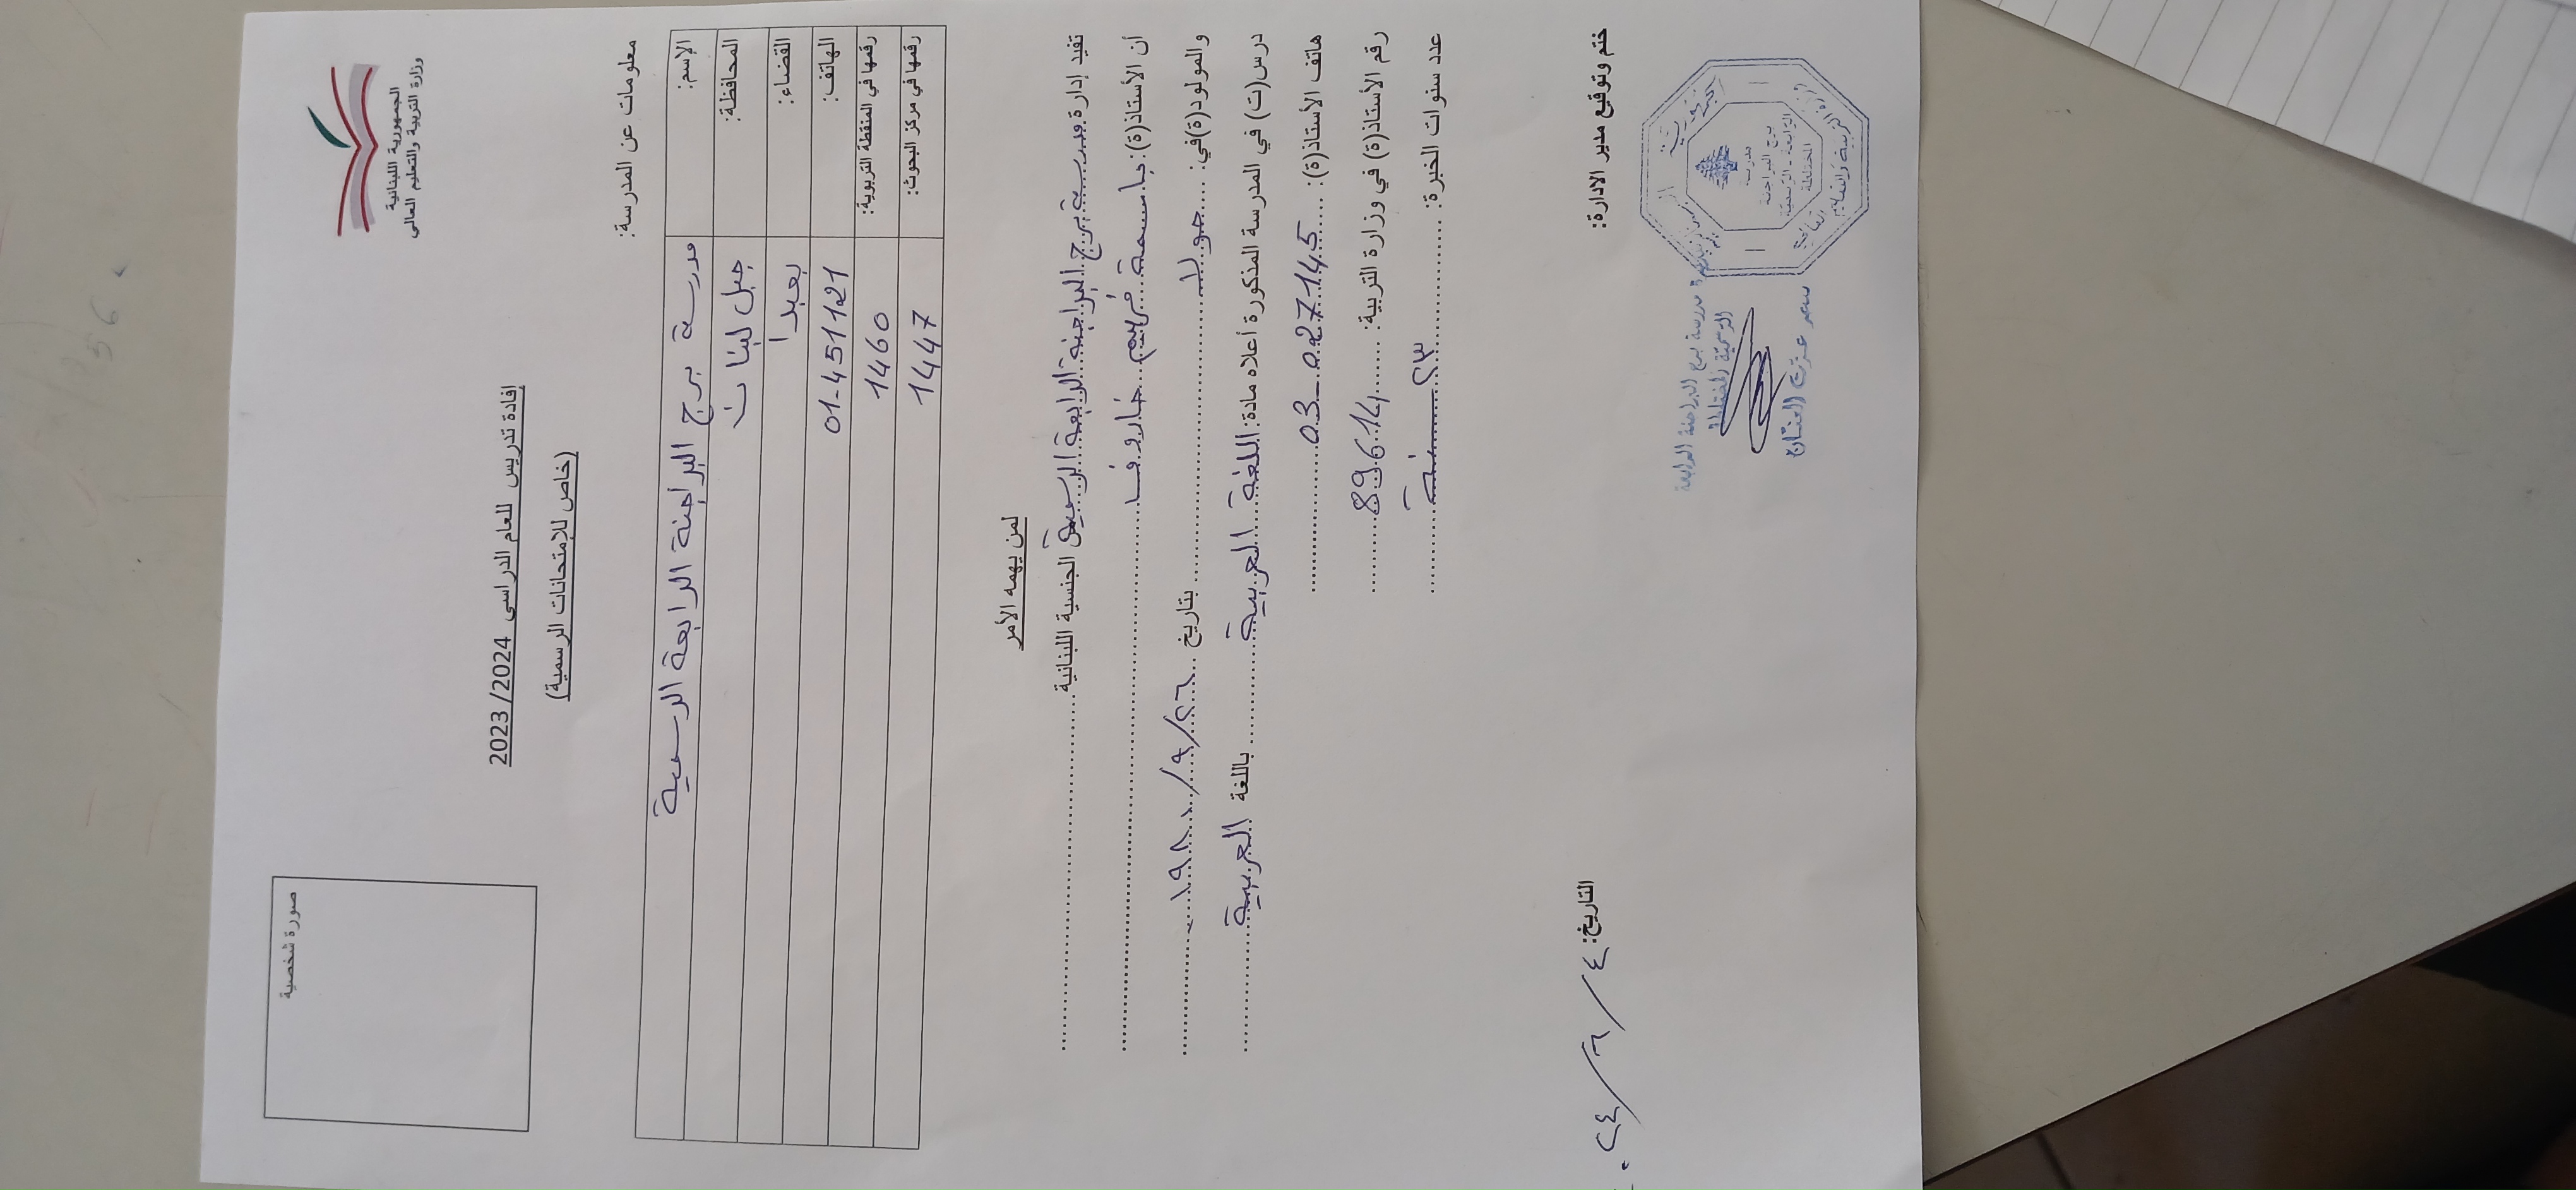 الجمهورية اللبنانية
وزارة التربية والتعليم العالي
صورة شخصية
إفادة تدريس للعام الدراسي 2023/2024
(خاص للامتحانات الرسمية)
معلومات عن المدرسة:
الإسم: مدرسة برج البراجنة الرابعة الرسمية
المحافظة: جبل لبنان
القضاء: بعبدا
الهاتف: 01-451121
رقمها في المنطقة التربوية: 1460
رقمها في مركز البحوث: 1447
لمن يهمه الأمر
تفيد إدارة مدرسة برج البراجنة الرابعة الرسمية الجنسية اللبنانية
أن الأستاذ(ة): باسمة فهيم خاروف
والمولود(ة) في: حولا بتاريخ ١٩٨٠/٩/٢٦
درس(ت) في المدرسة المذكورة أعلاه مادة: اللغة العربية باللغة العربية
هاتف الأستاذ(ة): 03-027145
رقم الأستاذ(ة) في وزارة التربية: 89614
عدد سنوات الخبرة: ٢٣ سنة
ختم وتوقيع مدير الادارة:
التاريخ: ٤/٦/٢٤
مدرسة
برج البراجنة
الرابعة - الرسمية
المختلطة
مدرسة برج البراجنة الرابعة
الرسمية المختلطة